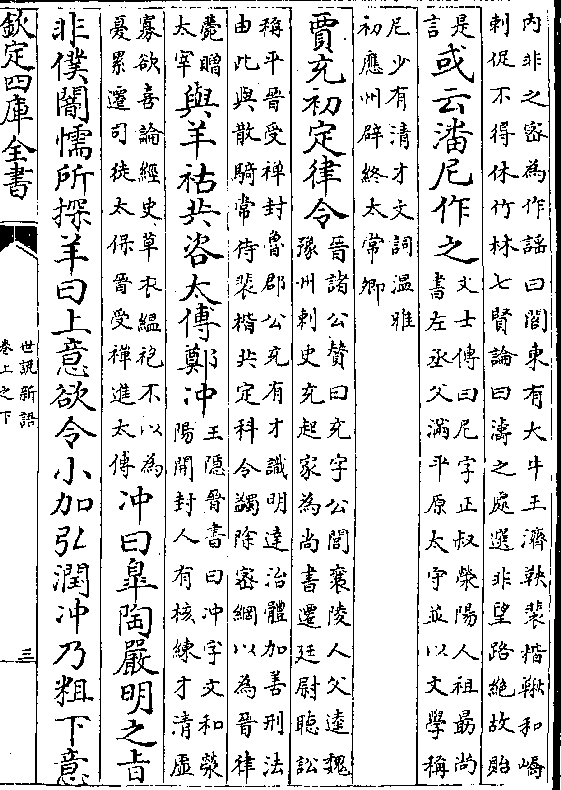 內非之密為作謡曰閣東有大牛王濟鞅裴楷鞦和嶠
刺促不得休竹林七賢論曰濤之處選非望路絶故貽
是
言
或云潘尼作之
文士傳曰尼字正叔榮陽人祖最尚
書左丞父滿平原太守並以文學稱
尼少有清才文詞温雅
初應州辟終太常卿
賈充初定律令
晉諸公賛曰充字公閭襄陵人父逵魏
豫州刺史充起家為尚書遷廷尉聽訟
稱平晉受禪封魯郡公充有才識明達治體加善刑法
由此與散騎常侍裴楷共定科令蠲除密網以為晉律
薨贈
太宰
與羊祜共咨太傅鄭冲
王隱晉書曰冲字文和滎
陽開封人有核練才清虛
寡欲喜論經史草衣緼袍不以為
憂累遷司徒太保晉受禪進太傅
冲曰臯陶嚴明之旨
非僕闇懦所探羊曰上意欲令小加弘潤冲乃粗下意
欽定四庫全書
世説新語
卷上之下
三